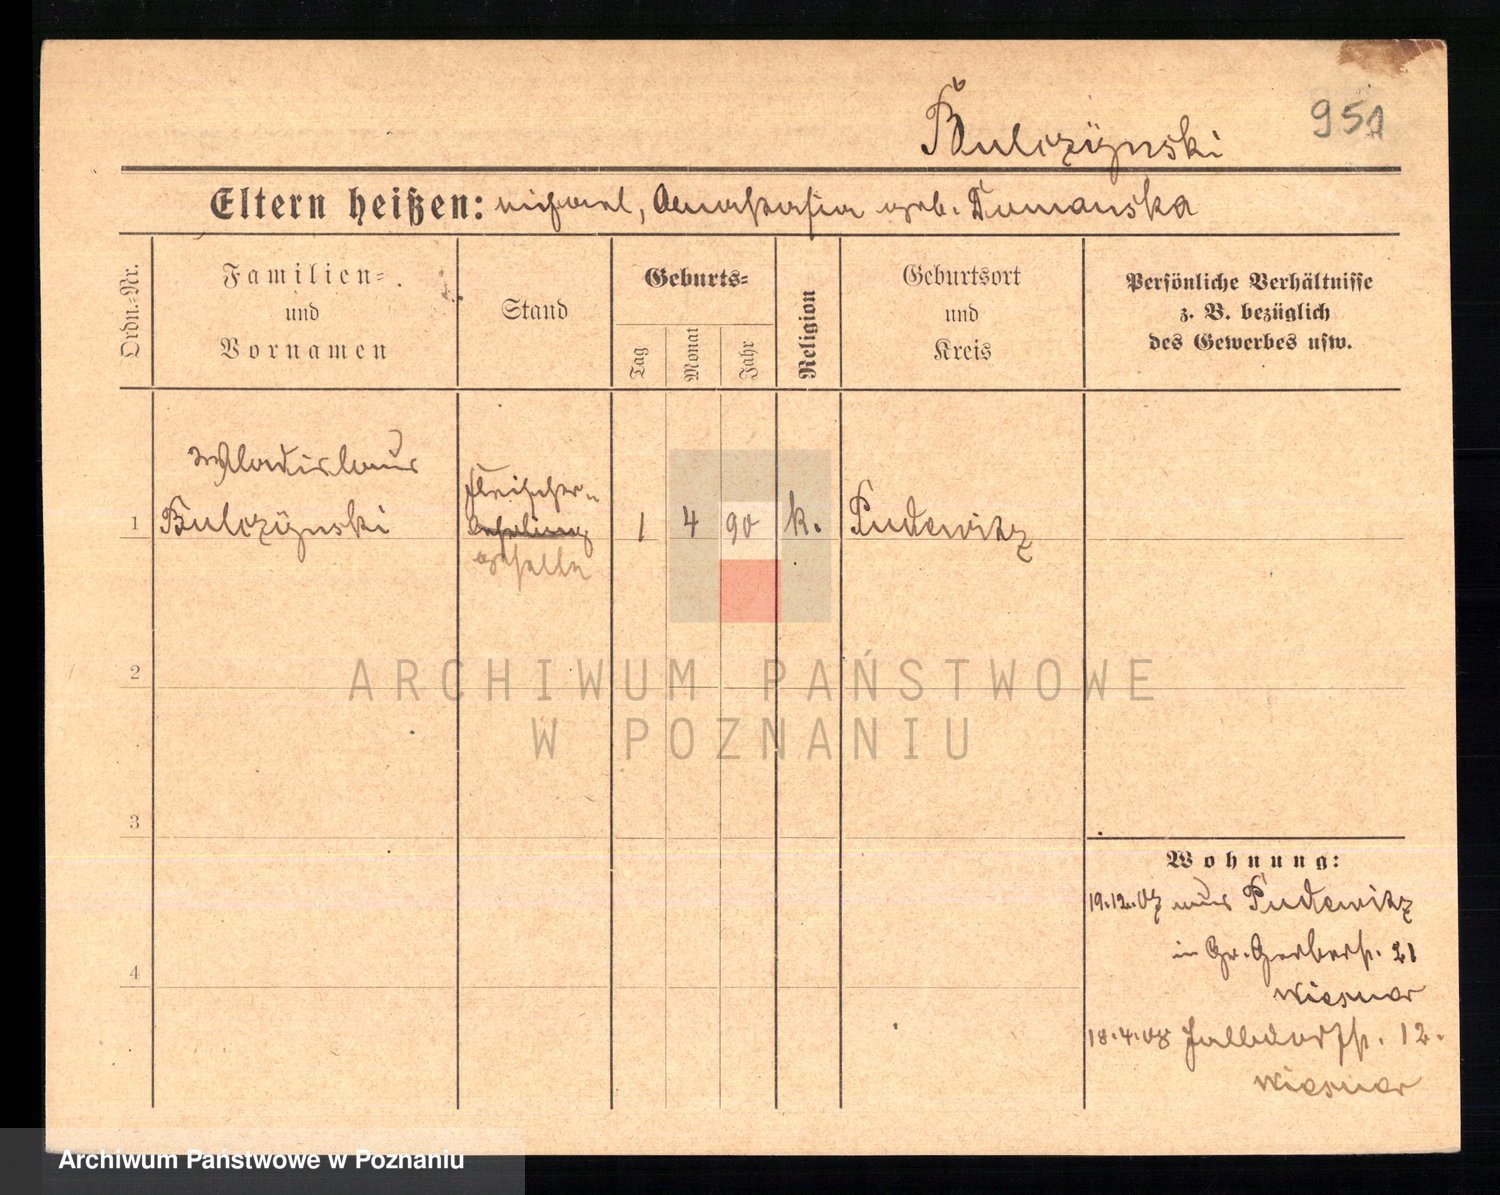 Bulczÿnski
951
Eltern heißen: Michael, Anastasia geb. Tomanska
Ordn.-Nr.
Familien-
und
Vornamen
Stand
Geburts-
Tag
Monat
Jahr
Religion
Geburtsort
und
Kreis
Persönliche Verhältnisse
z. B. bezüglich
des Gewerbes usw.
Wladislaus
Bulczÿnski
Fleischer-
Lehrling
geselle
1
1
4
90
k.
Pudewitz
2
ARCHIWUM PAŃSTWOWE
W POZNANIU
3
4
Wohnung:
19.12.07 aus Pudewitz
in Gr. Gerberst. 21
Wiesner
18.4.08 Halbdorfst. 12.
Wiesner
Archiwum Państwowe w Poznaniu